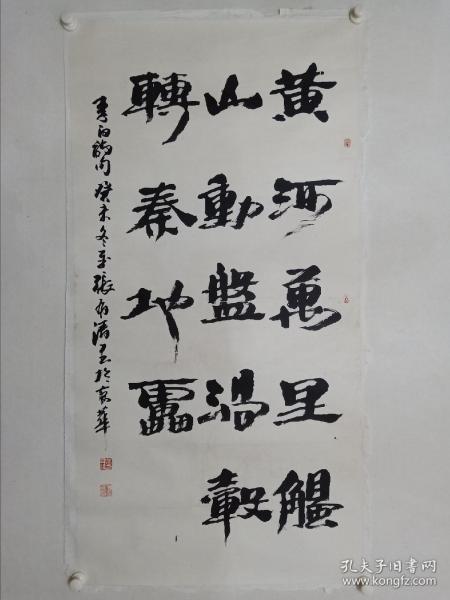 黄河萬里觸
山動盤渦轂
轉秦地靁
李白詩句 癸未冬至 張有清書於京華
孔夫子旧书网
www.kongfz.com